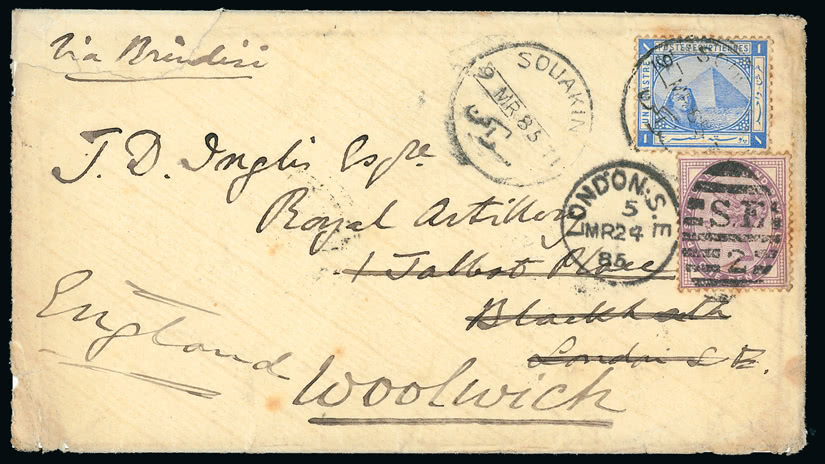 Via Brindisi
SOUAKIN
9 MR 85
POSTES EGYPTIENNES
UNE PIASTRE
J. D. Inglis Esqre
Royal Artillery
LONDON.S.E
5
MR24
85
S.E
2
1 Talbot Place
Blackheath
London S E.
England
Woolwich